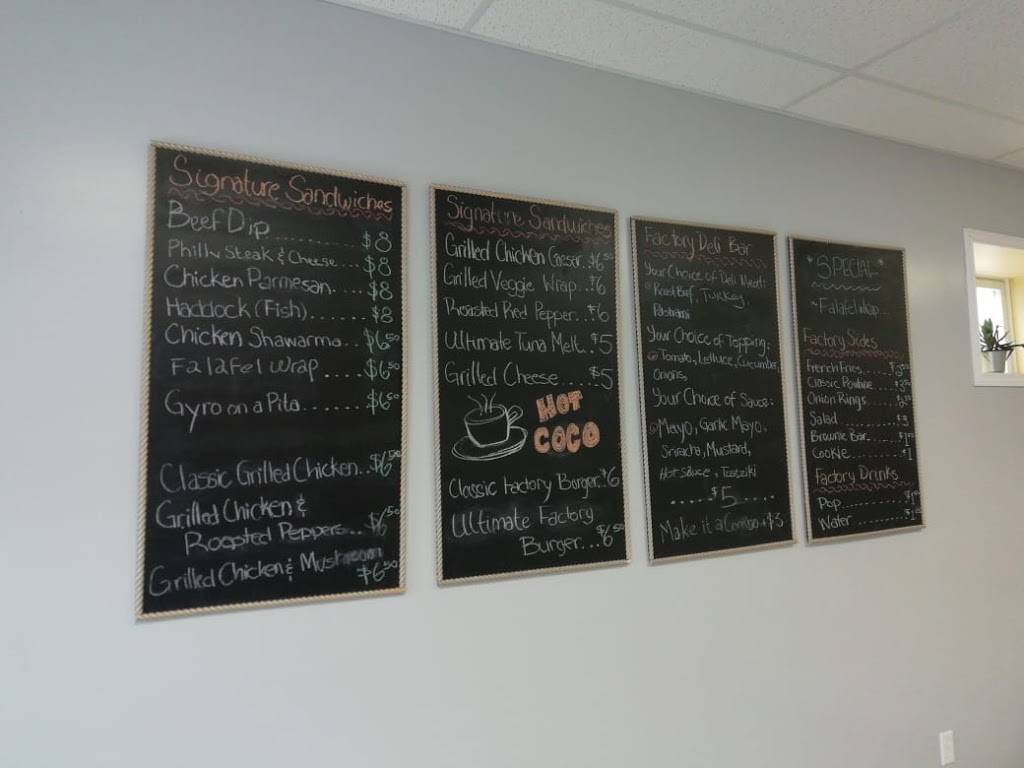 Signature Sandwiches
Beef Dip ......... $8
Philly Steak & Cheese... $8
Chicken Parmesan.... $8
Haddock (Fish).... $8
Chicken Shawarma.. $6.50
Falafel Wrap ..... $6.50
Gyro on a Pita....... $6.50
Classic Grilled Chicken.. $6.50
Grilled Chicken &
Roasted Peppers... $6.50
Grilled Chicken & Mushroom
$6.50
Signature Sandwiches
Grilled Chicken Caesar.. $6.50
Grilled Veggie Wrap.. $6
Roasted Red Pepper.. $6
Ultimate Tuna Melt.. $5
Grilled Cheese.... $5
HOT
COCO
Classic Factory Burger. $6
Ultimate Factory
Burger... $6.50
Factory Deli Bar
Your Choice of Deli Meat:
Roast Beef, Turkey,
Pastrami
Your Choice of Topping:
Tomato, Lettuce, Cucumber,
Onions,
Your Choice of Sauce:
Mayo, Garlic Mayo,
Sriracha, Mustard,
Hot Sauce, Tzatziki
..... $5 .....
Make it a Combo +$3
SPECIAL
Falafel Wrap
Factory Sides
French Fries.....
Classic Poutine ....
Onion Rings ....
Salad ........
Brownie Bar.....
Cookie ....... $1
Factory Drinks
Pop..........
Water ........